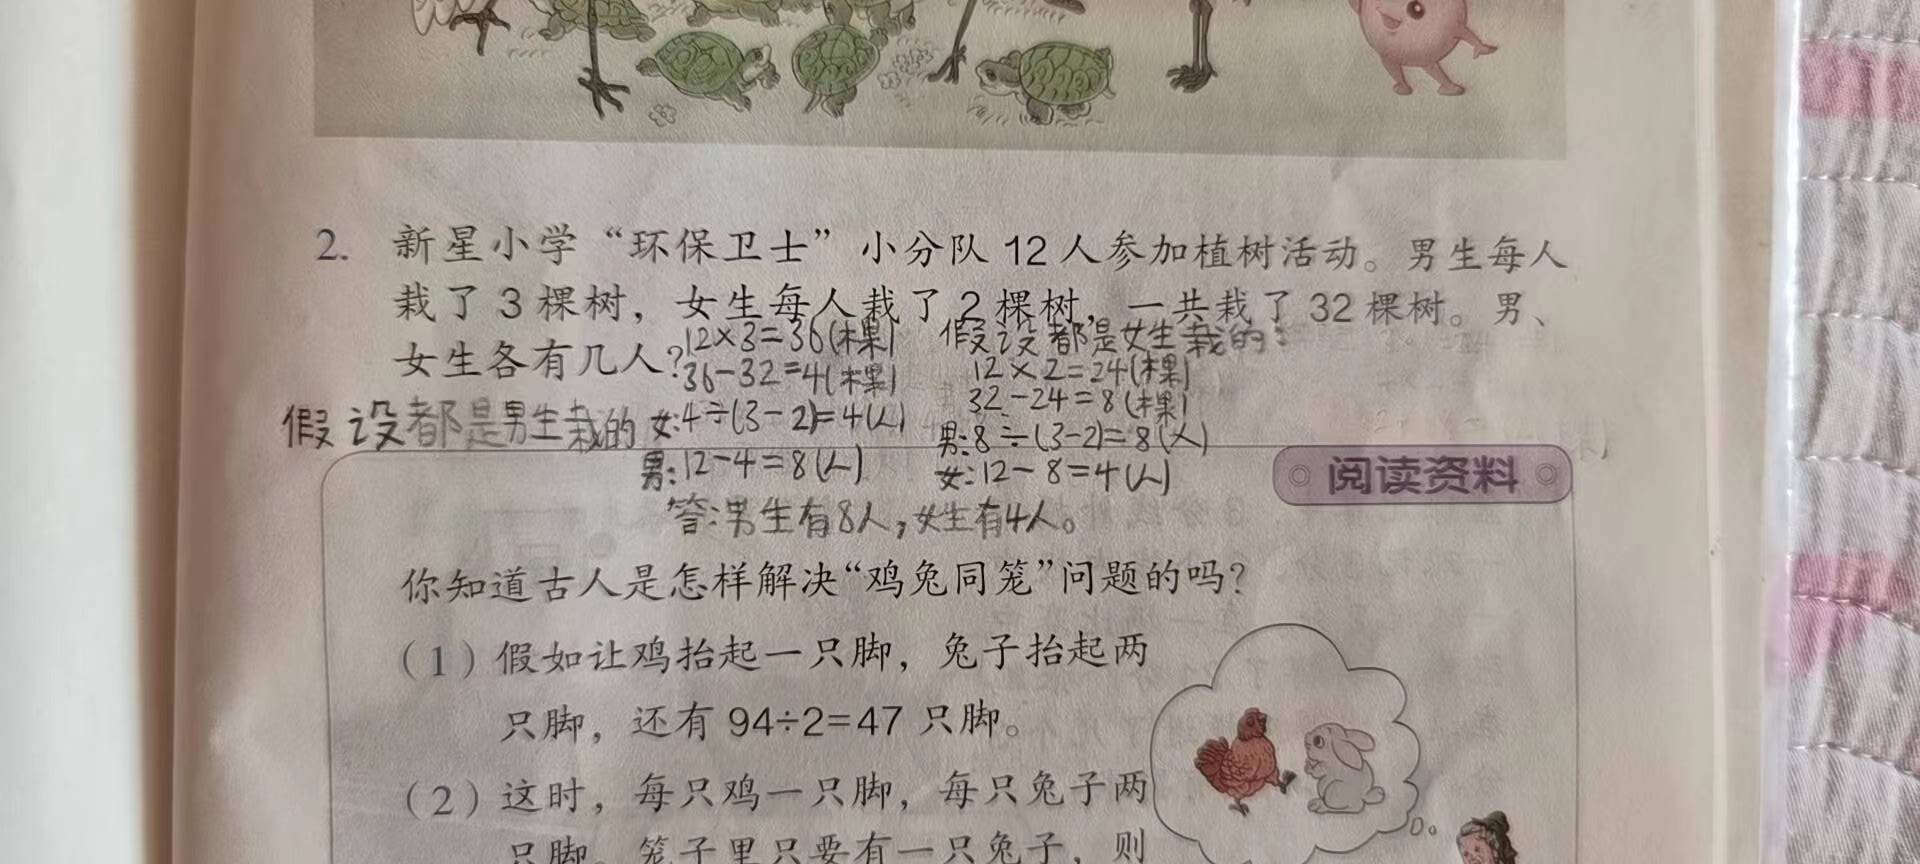 2. 新星小学“环保卫士”小分队 12 人参加植树活动。男生每人
栽了 3 棵树，女生每人栽了 2 棵树，一共栽了 32 棵树。男、
女生各有几人?
假设都是男生栽的
12×3=36(棵)
36-32=4(棵)
女:4÷(3-2)=4(人)
男:12-4=8(人)
假设都是女生栽的:
12×2=24(棵)
32-24=8(棵)
男:8÷(3-2)=8(人)
女:12-8=4(人)
答:男生有8人,女生有4人。
阅读资料
你知道古人是怎样解决“鸡兔同笼”问题的吗?
(1) 假如让鸡抬起一只脚，兔子抬起两
只脚，还有 94÷2=47 只脚。
(2) 这时，每只鸡一只脚，每只兔子两
只脚。笼子里只要有一只兔子，则